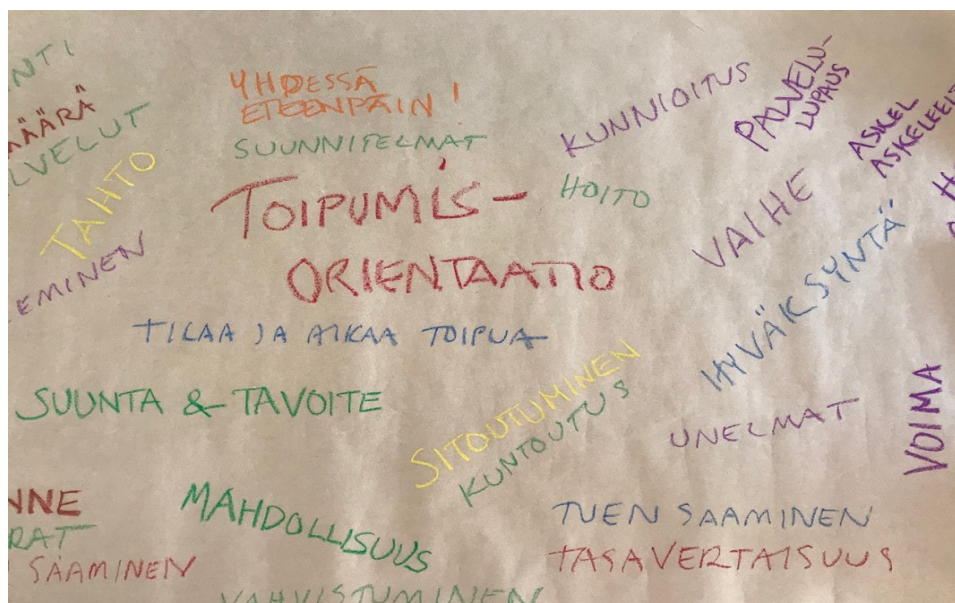 NTI
ÄÄRÄ
LVELUT
TAHTO
EMINEN
YHDESSÄ
ETEENPÄIN!
SUUNNITELMAT
TOIPUMIS-
ORIENTAATIO
KUNNIOITUS
HOITO
PALVELU-
LUPAUS
ASKEL
ASKELEELT
VAIHE
HYVÄKSYNTÄ
TILAA JA AIKAA TOIPUA
SUUNTA & TAVOITE
SITOUTUMINEN
KUNTOUTUS
UNELMAT
VOIMA
NNE
RAT
SAAMINEN
MAHDOLLISUUS
TUEN SAAMINEN
TASAVERTAISUUS
VAHVISTUMINEN